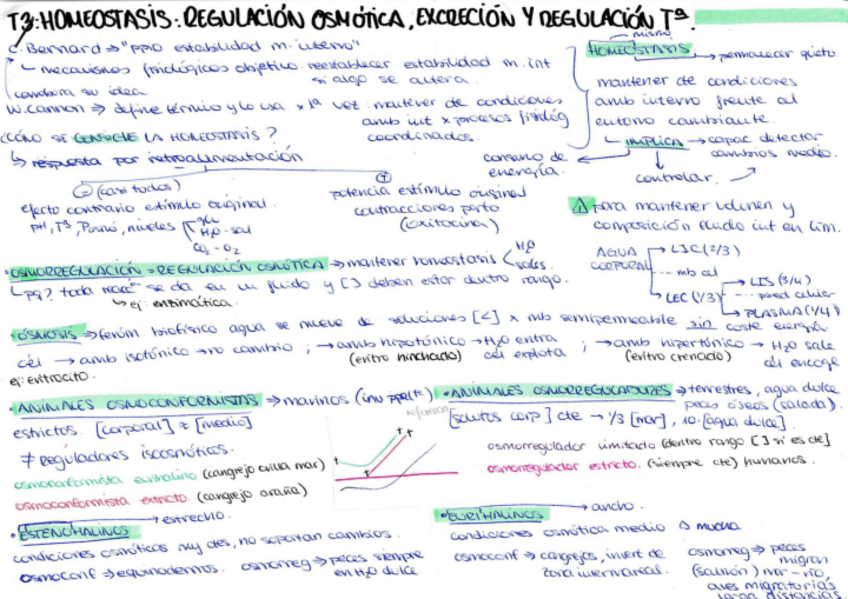 T3: HOMEOSTASIS: REGULACIÓN OSMÓTICA, EXCRECIÓN Y REGULACIÓN Tª.
C. Bernard → "ppio estabilidad m. interno"
↳ mecanismos fisiológicos objetivo: reestablecer estabilidad m. int
si algo se altera.
corrobora su idea
W. Cannon ⇒ define término y lo usa x 1ª vez: mantener de condiciones
amb int x procesos fisiológ
coordinados.
mismo
HOMEOSTASIS → permanecer quieto.
mantener cte condiciones
amb interno frente al
entorno cambiante.
↳ IMPLICA → capac detectar
cambios medio.
controlar.
consumo de
energía.
¿CÓMO SE CONSIGUE LA HOMEOSTASIS?
↳ respuesta por retroalimentación
⊖ (casi todos)
efecto contrario estímulo original.
pH, Tª, niveles
glu
H2O - sal
CO2 - O2
⊕
potencia estímulo original
contracciones parto
(oxitocina)
⚠ para mantener volumen y
composición fluido int en lím.
AGUA CORPORAL
LIC (2/3)
mb cel
LEC (1/3)
LIS (3/4)
pared capilar
PLASMA (1/4)
· OSMORREGULACIÓN = REGULACIÓN OSMÓTICA → mantener homeostasis
H2O
sales.
↳ pq? toda reacc se da en un fluido y [ ] deben estar dentro rango.
↳ ej: enzimática.
· ÓSMOSIS → fenóm biofísico agua se mueve de soluciones [<] x mb semipermeable sin coste energía.
cél → amb isotónico → no cambio ; → amb hipotónico → H2O entra ; → amb hipertónico → H2O sale
ej: eritrocito.
(eritro hinchado)
cél explota
(eritro crenado)
cél encoge
· ANIMALES OSMOCONFORMISTAS → marinos (inv pplte)
estrictos. [corporal] ≈ [medio]
≠ reguladores isosmóticos.
osmoconformista eurihalino (cangrejo orilla mar)
osmoconformista estricto. (cangrejo araña)
· ANIMALES OSMORREGULADORES → terrestres, agua dulce
peces óseos (salada).
[solutos corp] cte → 1/3 [mar], 10·[agua dulce].
osmorregulador limitado (dentro rango [ ] sí es cte)
osmorregulador estricto. (siempre cte) humanos.
· ESTENOHALINOS → estrecho.
condiciones osmóticas muy ctes, no soportan cambios.
osmoconf → equinodermos. osmorreg → peces siempre
en H2O dulce
· EURIHALINOS → ancho.
condiciones osmótica medio Δ mucho
osmoconf → cangrejos, invert de
zona intermareal.
osmorreg → peces
migran
(salmón) mar - río
aves migratorias
larga distancias.